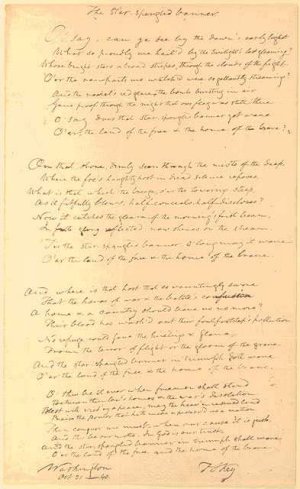 The Star-Spangled banner
O say, can ye see by the dawn's early light
What so proudly we hail'd by the twilight's last gleaming?
Whose bright stars & broad stripes, through the clouds of the fight,
O'er the ramparts we watched were so gallantly streaming?
And the rocket's red glare, the bombs bursting in air
Gave proof through the night that our flag was still there
O say, does that star-spangled banner yet wave
O'er the land of the free & the home of the brave?
On that shore, dimly seen through the mists of the deep,
Where the foe's haughty host in dread silence reposes
What is that which the breeze, o'er the towering steep
As it fitfully blows, half conceals, half discloses?
Now it catches the gleam of the morning's first beam,
In full glory reflected now shines on the stream
'Tis the star-spangled banner, O long may it wave
O'er the land of the free & the home of the brave.
And where is that host that so vauntingly swore
That the havoc of war & the battle's confusion
A home & a country should leave us no more?
Their blood has wash'd out their foul footsteps' pollution
No refuge could save the hireling & slave
From the terror of flight or the gloom of the grave
And the star-spangled banner in triumph doth wave
O'er the land of the free & the home of the brave.
O thus be it ever when freemen shall stand
Between their lov'd homes & the war's desolation
Blest with vict'ry & peace, may the heav'n rescued land
Praise the power that hath made & preserv'd us a nation
Then conquer we must when our cause it is just
And this be our motto, In God is our trust
And the star-spangled banner in triumph shall wave
O'er the land of the free and the home of the brave
Washington
Oct 21 – 40
F S Key